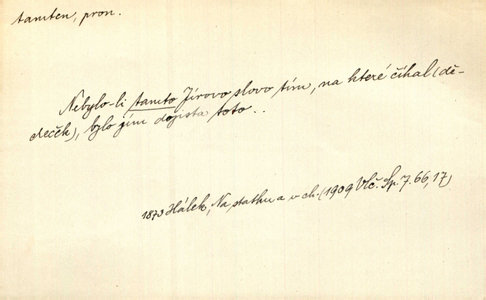 tamten, pron.
Nebylo-li tamto Jírovo slovo tím, na které číhal (dě-
deček), bylo jím dojista toto..
1873 Hálek, Na statku a v ch. (1909 Vlč. Sp. 7. 66, 17)